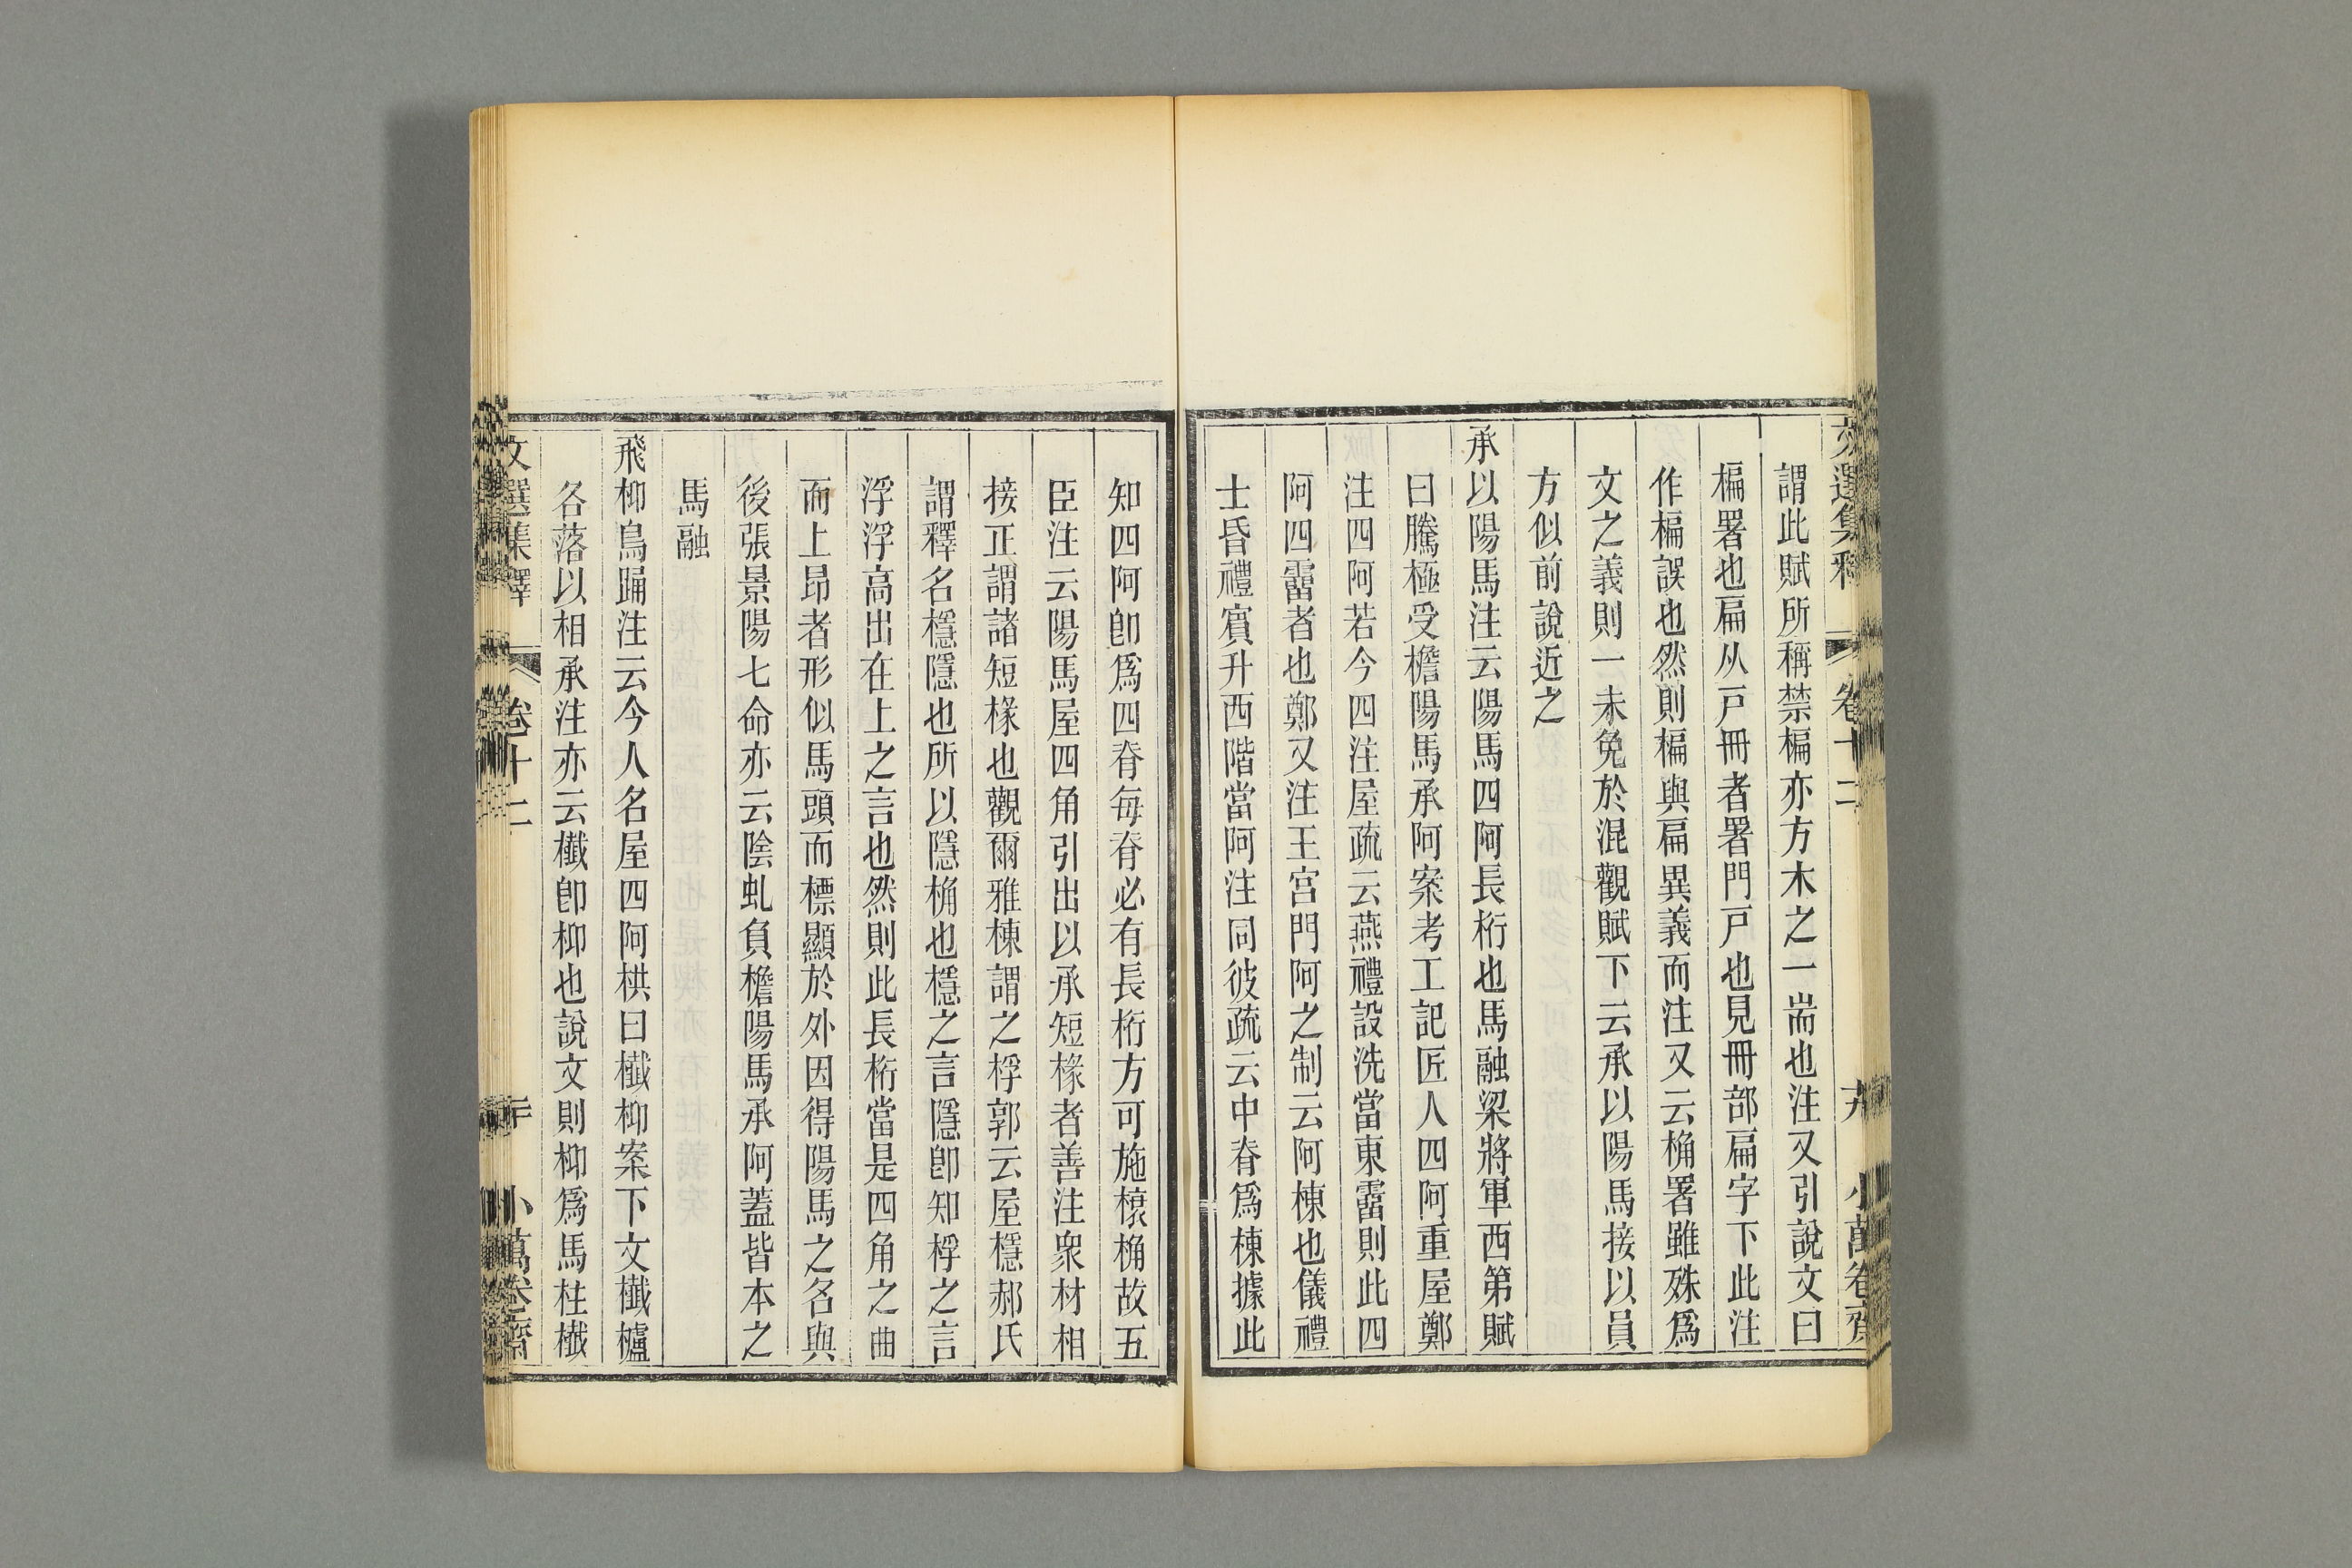 文選集釋 卷十二 九 小萬卷齋
謂此賦所稱禁楄亦方木之一耑也注又引說文曰
楄署也扁从戸冊者署門戸也見冊部扁字下此注
作楄誤也然則楄與扁異義而注又云桷署雖殊爲
文之義則一未免於混觀賦下云承以陽馬接以員
方似前說近之
承以陽馬注云陽馬四阿長桁也馬融梁將軍西第賦
曰騰極受檐陽馬承阿案考工記匠人四阿重屋鄭
注四阿若今四注屋疏云燕禮設洗當東霤則此四
阿四霤者也鄭又注王宮門阿之制云阿棟也儀禮
士昏禮賓升西階當阿注同彼疏云中脊爲棟據此
知四阿卽爲四脊每脊必有長桁方可施榱桷故五
臣注云陽馬屋四角引出以承短椽者善注衆材相
接正謂諸短椽也觀爾雅棟謂之桴郭云屋檼郝氏
謂釋名檼隱也所以隱桷也檼之言隱卽知桴之言
浮浮高出在上之言也然則此長桁當是四角之曲
而上昂者形似馬頭而標顯於外因得陽馬之名與
後張景陽七命亦云陰虬負檐陽馬承阿蓋皆本之
馬融
飛枊鳥踊注云今人名屋四阿栱曰櫼枊案下文櫼櫨
各落以相承注亦云櫼卽枊也說文則枊爲馬柱櫼
文選集釋 卷十二 二十 小萬卷齋